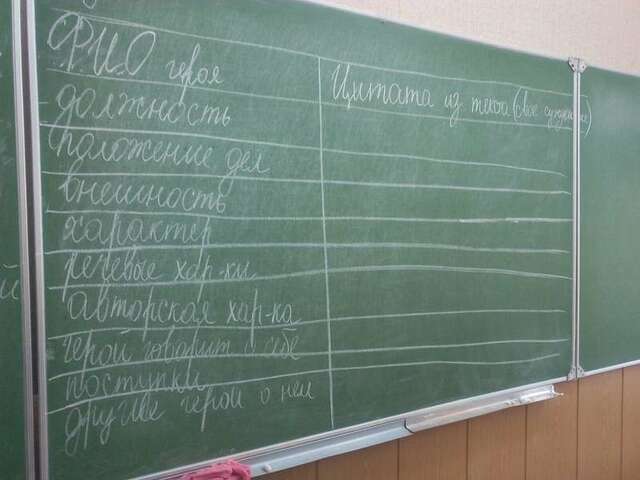 Ф.И.О героя
Цитата из текста (свое суждение)
должность
положение дел
внешность
характер
речевые хар-ки
авторская хар-ка
герой говорит о себе
поступки
другие герои о нем
й